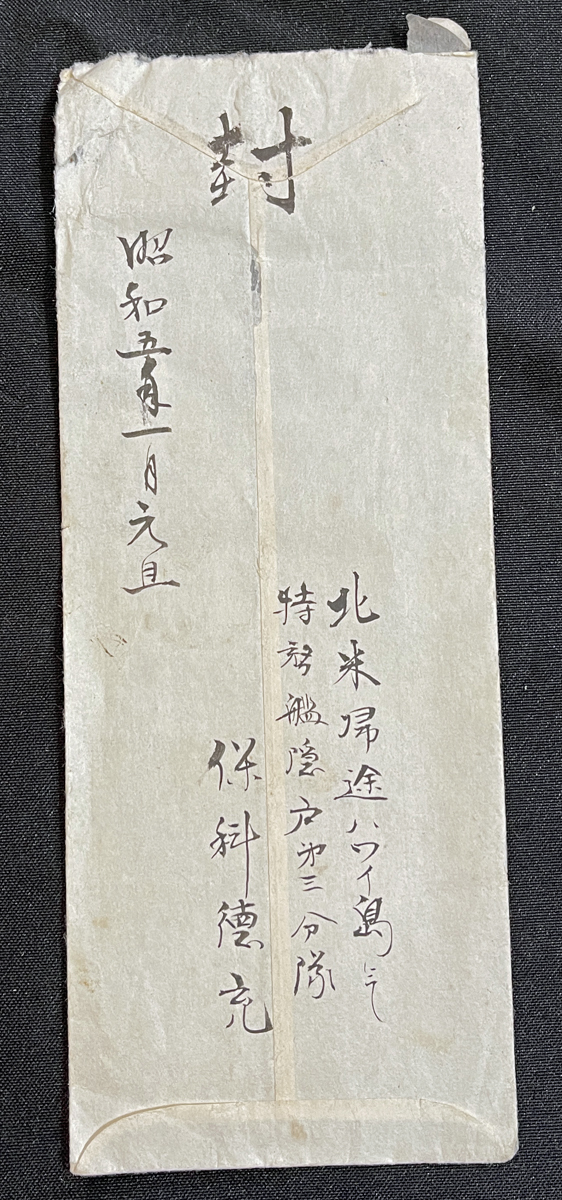 封
北米帰途ハワイ島にて
特務艦隠戸第三分隊
保科德充
昭和五年一月元旦